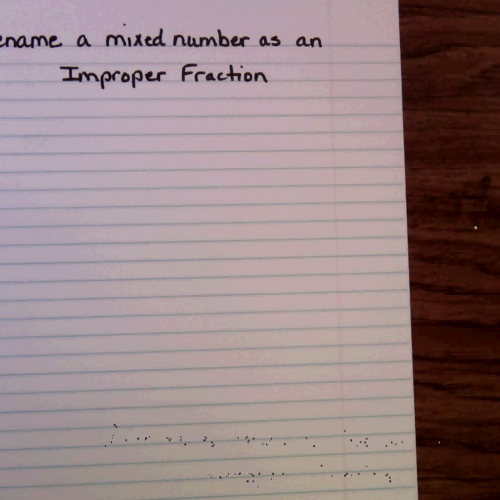 ename a mixed number as an
Improper Fraction